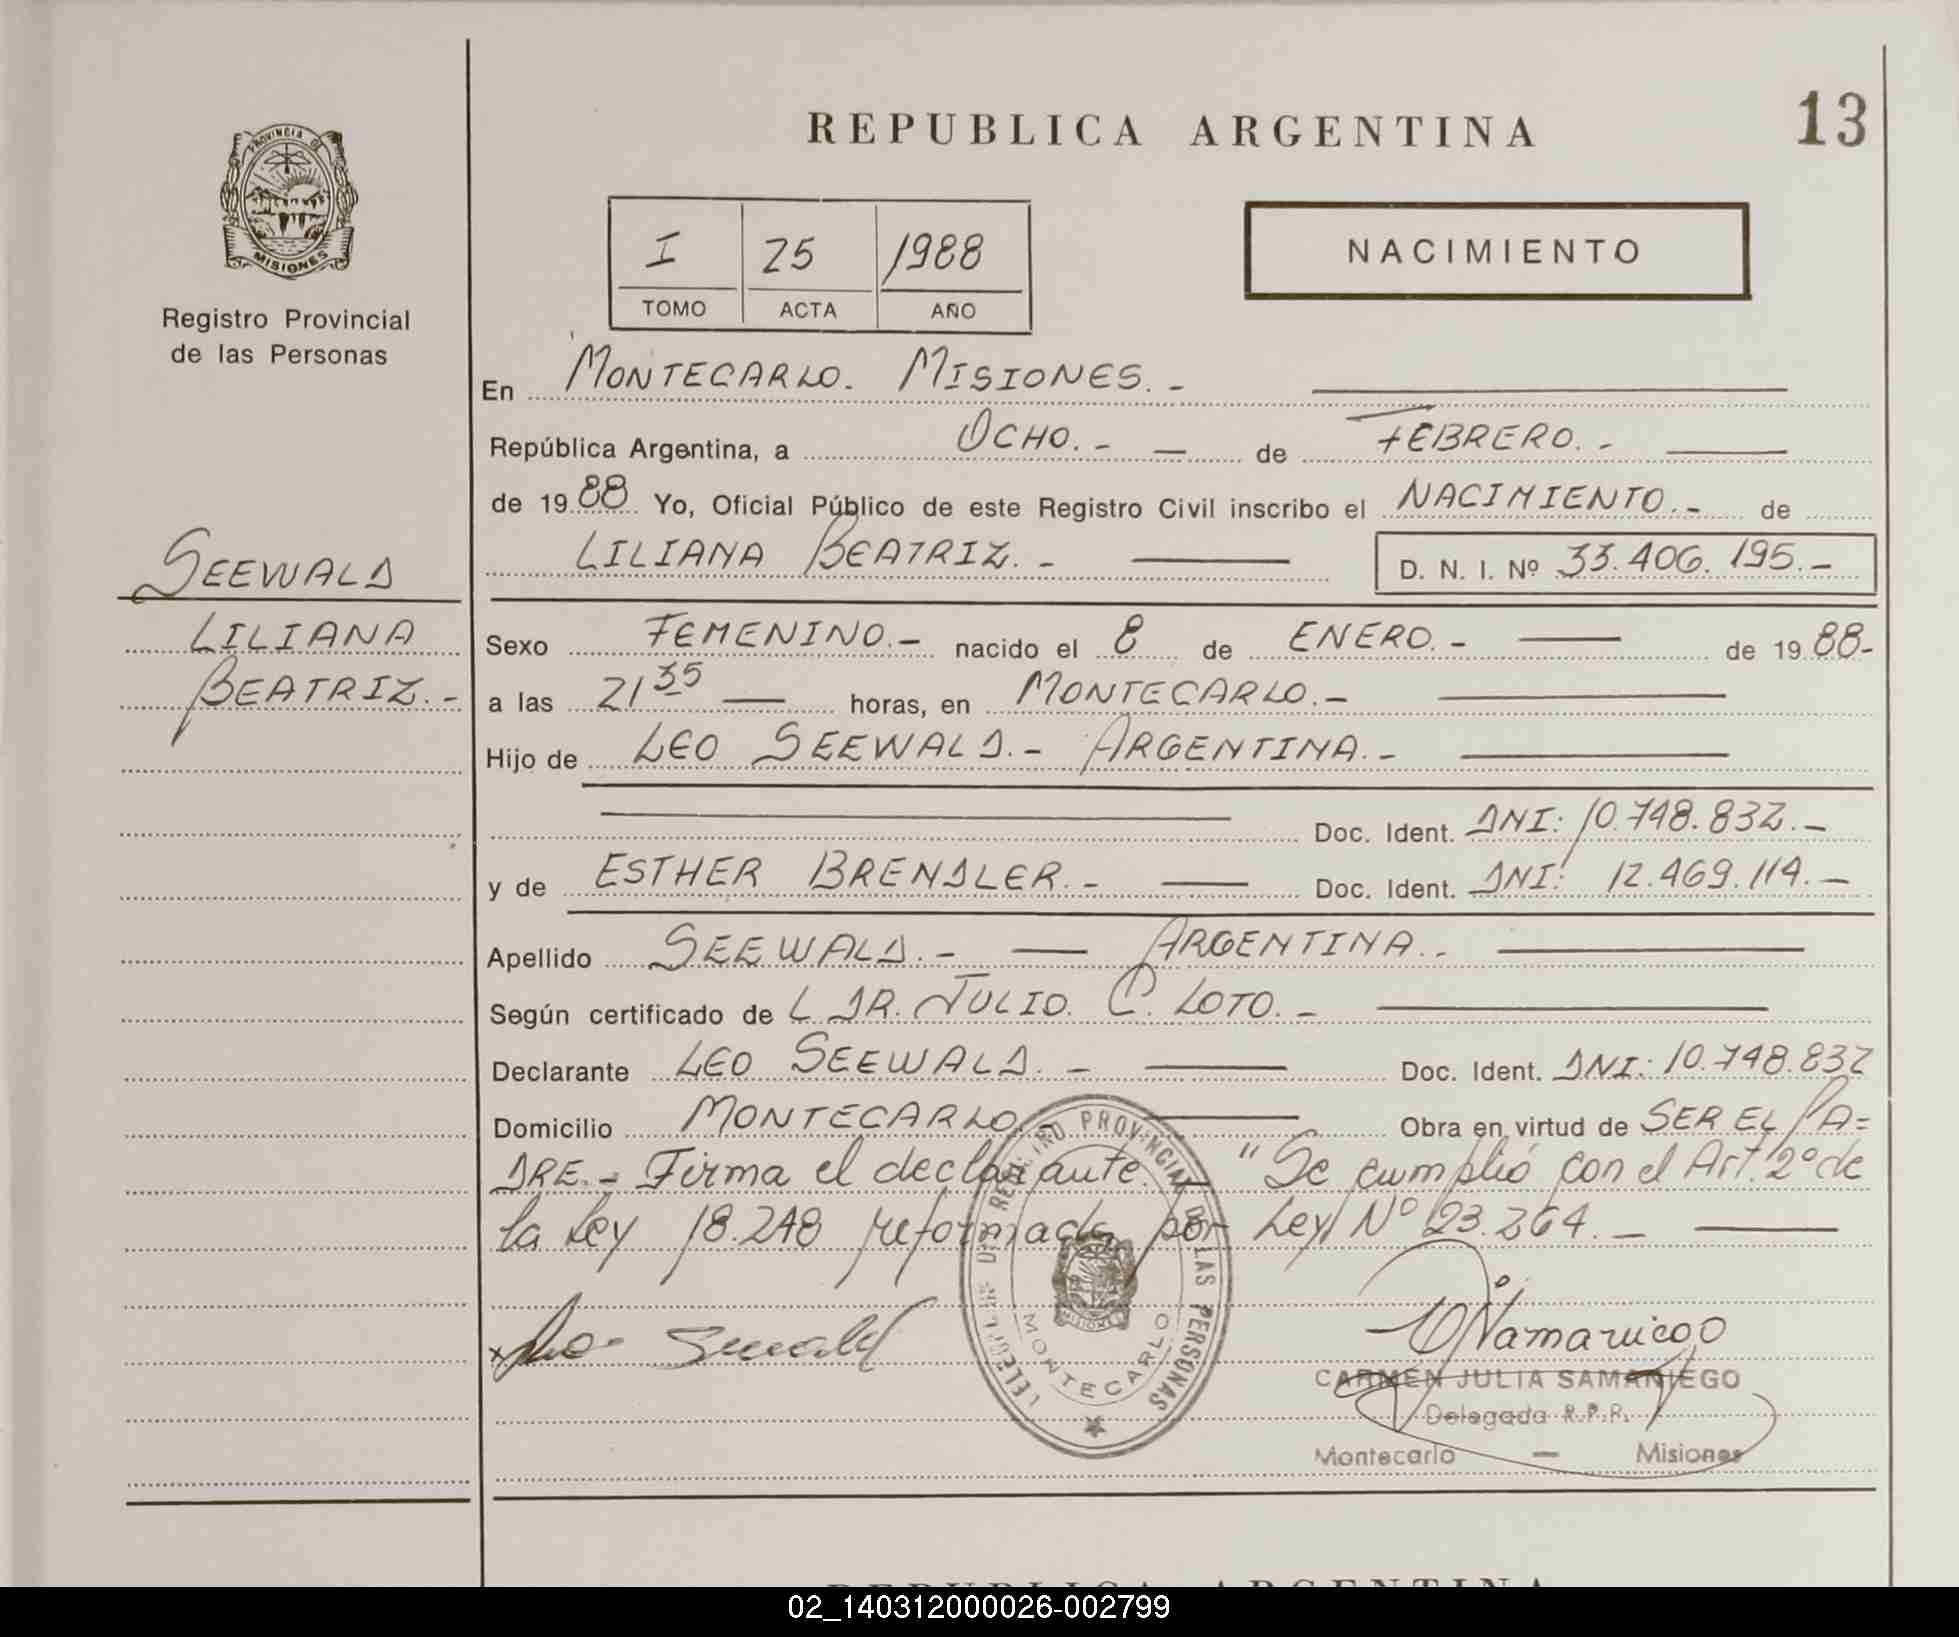 REPUBLICA ARGENTINA
13
PROVINCIA DE
MISIONES
Registro Provincial
de las Personas
I 25 1988
TOMO ACTA AÑO
NACIMIENTO
En MONTECARLO. MISIONES.-
República Argentina, a OCHO.- — de FEBRERO.-
de 1988 Yo, Oficial Público de este Registro Civil inscribo el NACIMIENTO.- de
LILIANA BEATRIZ.- D. N. I. Nº 33.406.195.-
SEEWALD
LILIANA
BEATRIZ.-
Sexo FEMENINO.- nacido el 8 de ENERO.- de 1988-
a las 21 35 — horas, en MONTECARLO.-
Hijo de LEO SEEWALD.- ARGENTINA.-
Doc. Ident. DNI: 10.748.832.-
y de ESTHER BRENDLER.- Doc. Ident. DNI: 12.469.114.-
Apellido SEEWALD.- — ARGENTINA.-
Según certificado de L DR. JULIO. C. LOTO.-
Declarante LEO SEEWALD.- Doc. Ident. DNI: 10.748.832
Domicilio MONTECARLO.- Obra en virtud de SER EL PA=
DRE.- Firma el declarante.- "Se cumplió con el Art. 2º de
la Ley 18.248 reformada por Ley Nº 23.264.-
REGISTRO PROVINCIAL DE LAS PERSONAS
MONTECARLO
MISIONES
x Leo Seewald
CARMEN JULIA SAMANIEGO
Delegada R.P.P.
Montecarlo — Misiones
REPUBLICA ARGENTINA
02_140312000026-002799